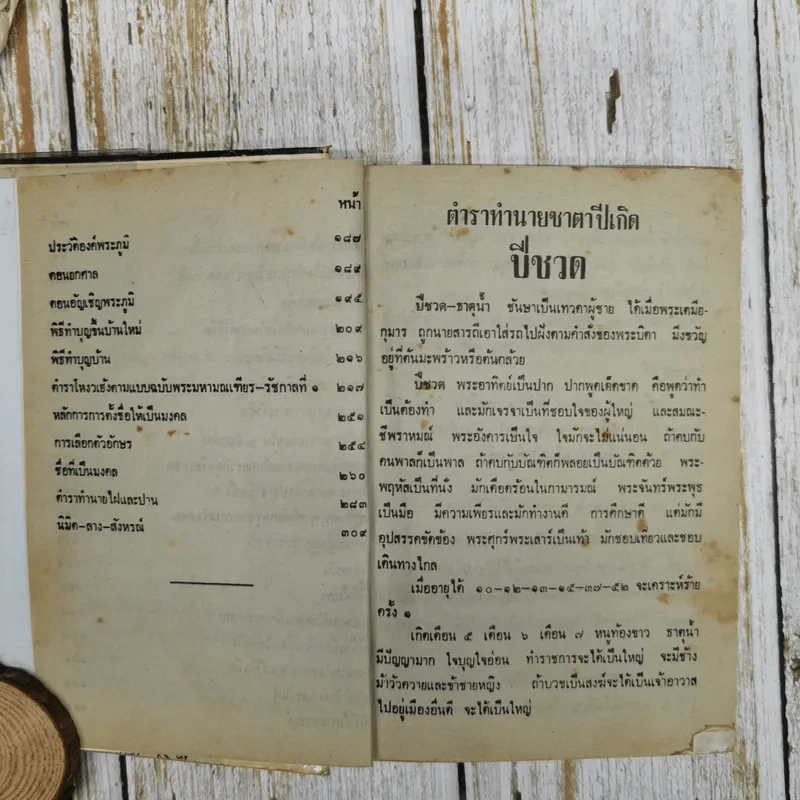 หน้า
ประวัติองค์พระภูมิ ๑๘๗
ตอนยกศาล ๑๘๙
ตอนอัญเชิญพระภูมิ ๑๙๕
พิธีทำบุญขึ้นบ้านใหม่ ๒๐๙
พิธีทำบุญบ้าน ๒๑๖
ตำราโหงวเฮ้งตามแบบฉบับพระมหามณเฑียร-รัชกาลที่ ๑ ๒๑๗
หลักการการตั้งชื่อให้เป็นมงคล ๒๕๑
การเลือกตัวอักษร ๒๕๔
ชื่อที่เป็นมงคล ๒๖๐
ตำราทำนายไฝและปาน ๒๘๓
นิมิต-ลาง-สังหรณ์ ๓๐๙
ตำราทำนายชาตาปีเกิด
ปีชวด
ปีชวด-ธาตุน้ำ ชันษาเป็นเทวดาผู้ชาย ได้เมื่อพระเตมีย-
กุมาร ถูกนายสารถีเอาใส่รถไปฝังตามคำสั่งของพระบิดา มิ่งขวัญ
อยู่ที่ต้นมะพร้าวหรือต้นกล้วย
ปีชวด พระอาทิตย์เป็นปาก ปากพูดเด็ดขาด คือพูดว่าทำ
เป็นต้องทำ และมักเจรจาเป็นที่ชอบใจของผู้ใหญ่ และสมณะ-
ชีพราหมณ์ พระอังคารเป็นใจ ใจมักจะไม่แน่นอน ถ้าคบกับ
คนพาลก็เป็นพาล ถ้าคบกับบัณฑิตก็พลอยเป็นบัณฑิตด้วย พระ-
พฤหัสเป็นที่นั่ง มักเดือดร้อนในกามารมณ์ พระจันทร์พระพุธ
เป็นมือ มีความเพียรและมักทำงานดี การศึกษาดี แต่มักมี
อุปสรรคขัดข้อง พระศุกร์พระเสาร์เป็นเท้า มักชอบเที่ยวและชอบ
เดินทางไกล
เมื่ออายุได้ ๑๐-๑๒-๑๓-๑๕-๓๗-๕๒ จะเคราะห์ร้าย
ครั้ง ๑
เกิดเดือน ๕ เดือน ๖ เดือน ๗ หนูท้องขาว ธาตุน้ำ
มีปัญญามาก ใจบุญใจอ่อน ทำราชการจะได้เป็นใหญ่ จะมีช้าง
ม้าวัวควายและข้าชายหญิง ถ้าบวชเป็นสงฆ์จะได้เป็นเจ้าอาวาส
ไปอยู่เมืองอื่นดี จะได้เป็นใหญ่